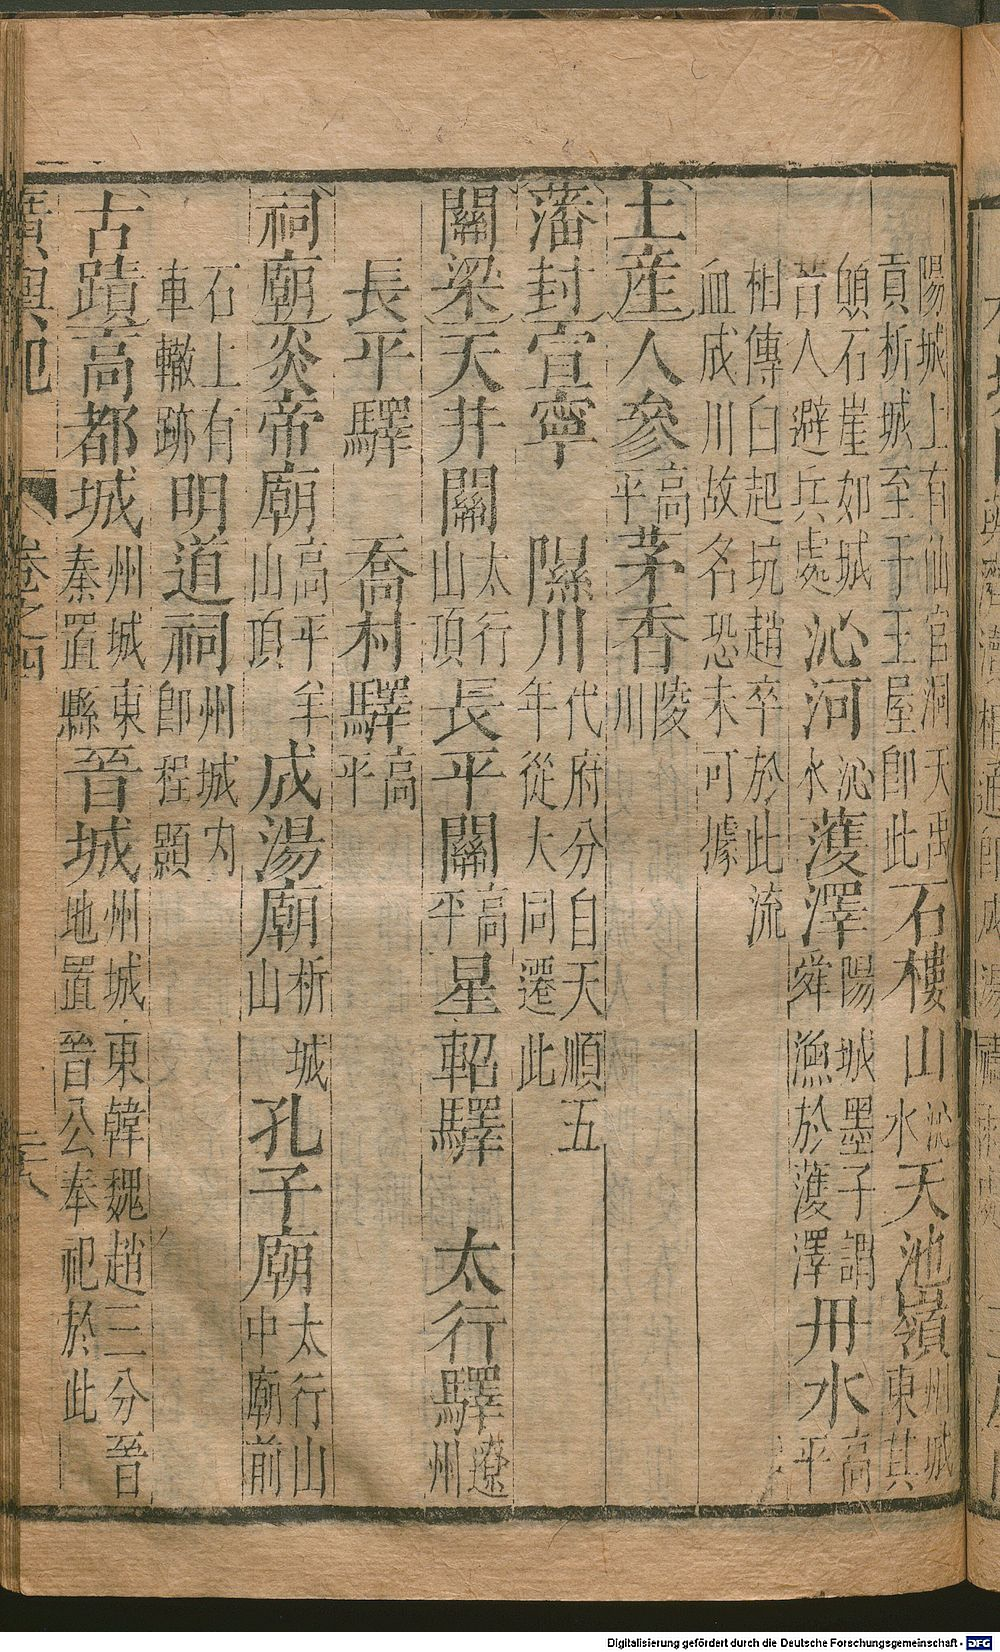 陽城上有仙官洞天禹貢析城至于王屋即此石樓山沁水天池嶺州城東其
石崖如城昔人避兵處沁河沁水濩澤陽城墨子謂舜漁於濩澤丹水高平
相傳白起坑趙卒於此流血成川故名恐未可據
土產人參高平茅香陵川
藩封宣寧 隰川代府分自天順五年從大同遷此
關梁天井關太行山頂長平關高平星軺驛 太行驛遼州
長平驛 喬村驛高平
祠廟炎帝廟高平羊山頂成湯廟析城山孔子廟太行山中廟前
石上有車轍跡明道祠州城內即程顥
古蹟高都城州城東秦置縣晉城州城東韓魏趙三分晉地置晉公奉祀於此
卷之四
Digitalisierung gefördert durch die Deutsche Forschungsgemeinschaft - DFG